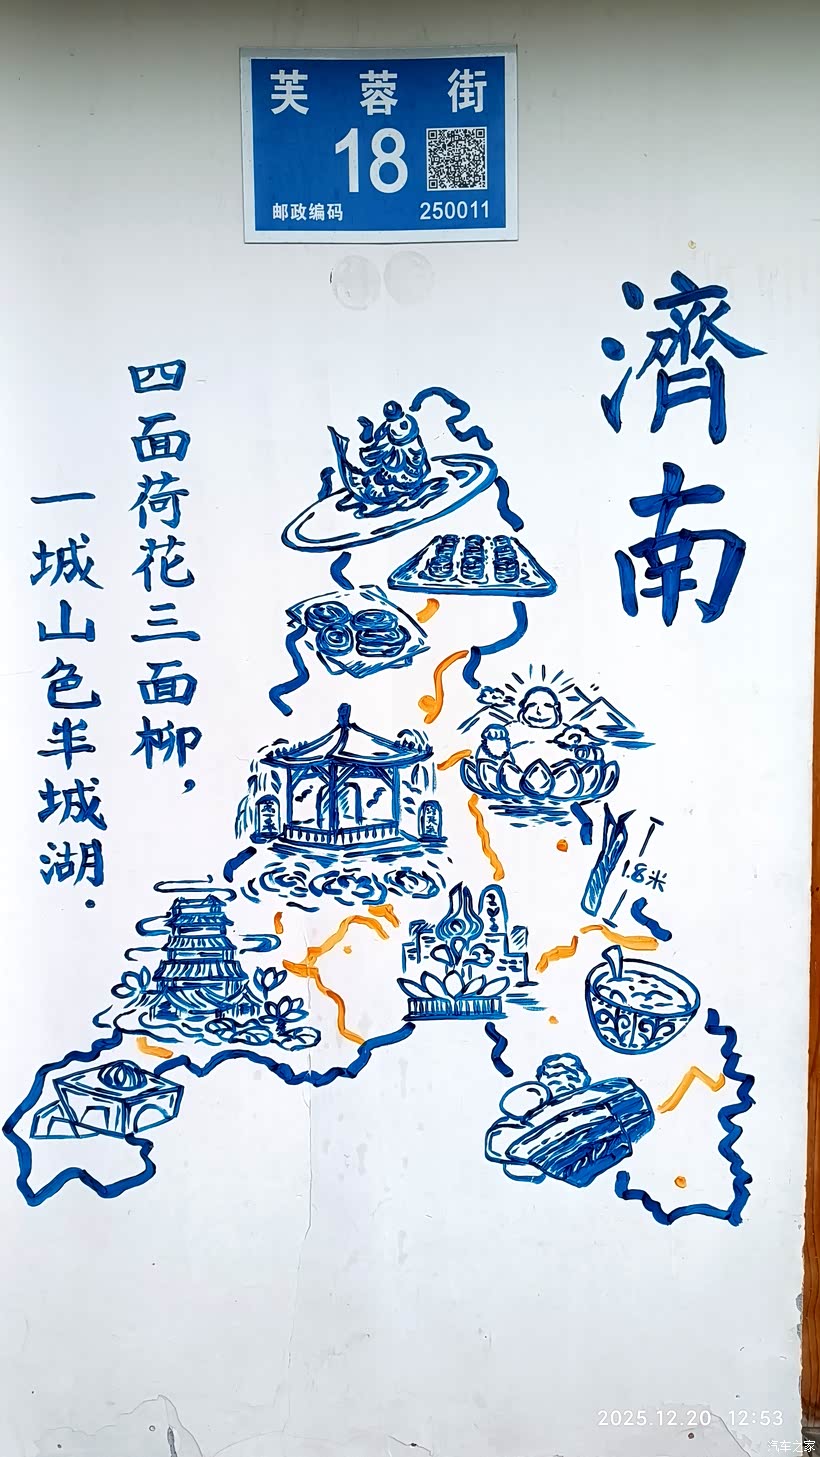 芙蓉街
18
邮政编码 250011
濟南
四面荷花三面柳，
一城山色半城湖.
1.8米
2025.12.20 12:53
汽车之家